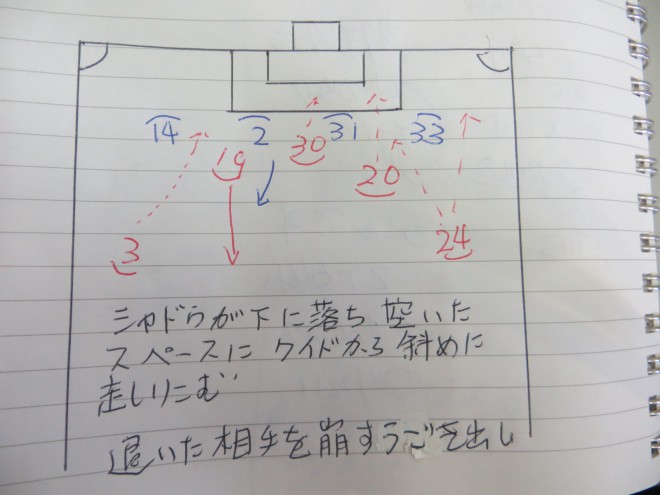 14 2 31 33
19 30 20
3 24
シャドウが下に落ち 空いた
スペースに ワイドから 斜めに
走しりこむ
退いた相手を崩すうごき出し